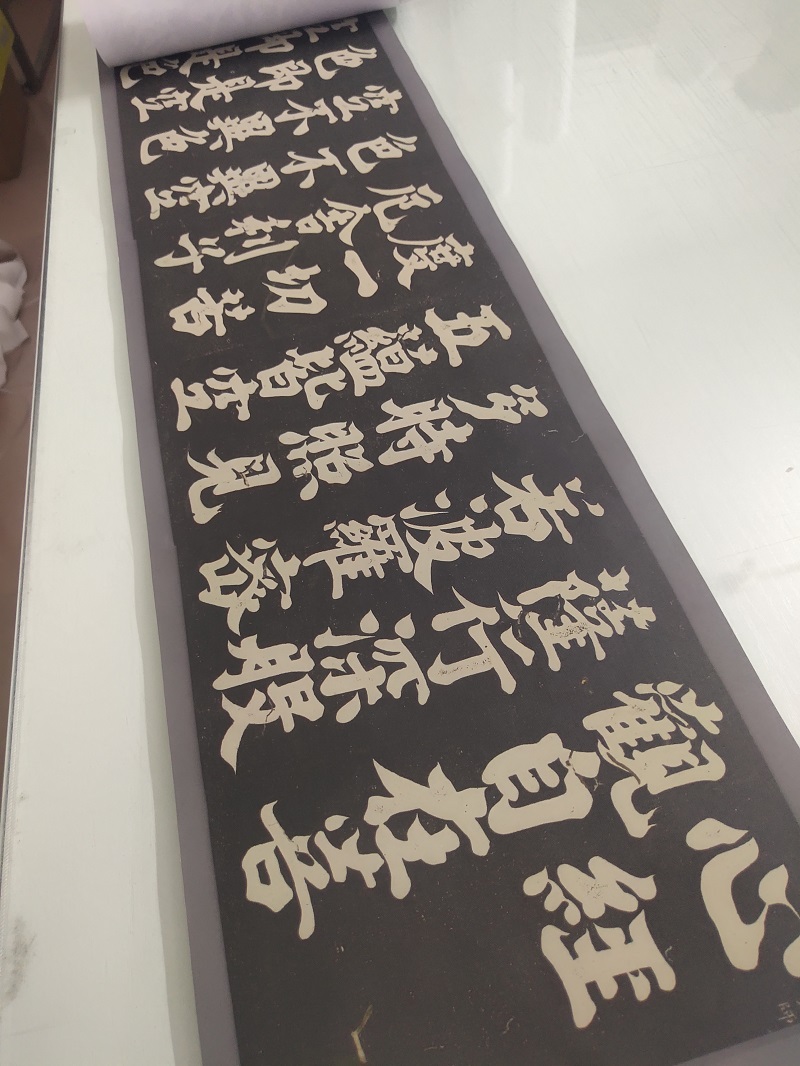 心經
觀自在菩
薩行深般
若波羅蜜
多時照見
五蘊皆空
度一切苦
厄舍利子
色不異空
空不異色
色即是空
空即是色